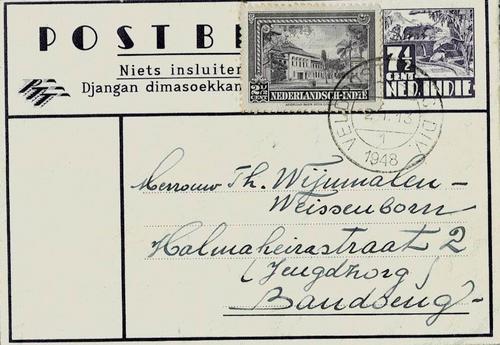 POST
Niets insluiten
Djangan dimasoekkan
PTT
NEDERLANDSCH-INDIË
7½
CENT
NED. INDIE
VELDPOST
DIV
1
1948
Mevrouw Th. Wijnmalen-
Weissenborn
Halmaheirastraat 2
(Jeugdzorg)
Bandoeng